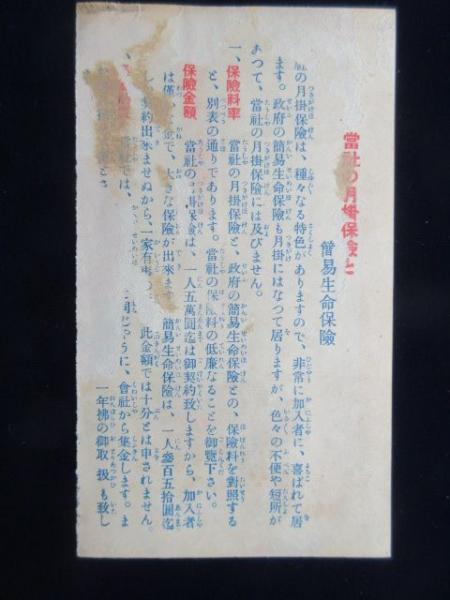 當社の月掛保險と
簡易生命保險
の月掛保險は、種々なる特色がありますので、非常に加入者に、喜ばれて居
ます。政府の簡易生命保險も月掛にはなつて居りますが、色々の不便や短所が
あつて、當社の月掛保險には及びません。
一、保險料率　當社の月掛保險と、政府の簡易生命保險との、保險料を對照する
と、別表の通りであります。當社の保險料の低廉なることを御覽下さい。
保險金額　當社の月掛保險は、一人五萬圓迄は御契約致しますから、加入者
は僅金で、大きな保險が出來ます。簡易生命保險は、一人參百五拾圓迄
契約出來ませぬから、一家有事　此金額では十分とは申されません。
當社では、　に、會社から集金します。ま
一年拂の御取扱も致し